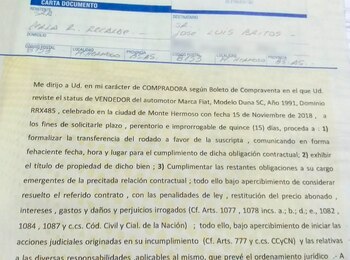 CARTA DOCUMENTO
JOSE LUIS
Me dirijo a Ud. en mi carácter de COMPRADORA según Boleto de Compraventa en el que Ud.
reviste el status de VENDEDOR del automotor Marca Fiat, Modelo Duna SC, Año 1991, Dominio
RRX485 , celebrado en la ciudad de Monte Hermoso con fecha 15 de Noviembre de 2018 , a
los fines de solicitarle plazo , perentorio e improrrogable de quince (15) días, proceda a : 1)
formalizar la transferencia del rodado a favor de la suscripta , comunicando en forma
fehaciente fecha, hora y lugar para el cumplimiento de dicha obligación contractual; 2) exhibir
el título de propiedad de dicho bien ; 3) Cumplimentar las restantes obligaciones a su cargo
emergentes de la precitada relación contractual ; todo ello bajo apercibimiento de considerar
resuelto el referido contrato , con las penalidades de ley , restitución del precio abonado ,
intereses , gastos y daños y perjuicios irrogados (Cf. Arts. 1077 , 1078 incs. a.; b.; d.; e., 1082 ,
1084 , 1087 y c.cs. Cód. Civil y Cial. de la Nación) ; todo ello, bajo apercibimiento de iniciar las
acciones judiciales originadas en su incumplimiento (Cf. Arts. 777 y c.cs. CCyCN) y las relativas
a las diversas responsabilidades aplicables al mismo, que prevé el ordenamiento jurídico .- A